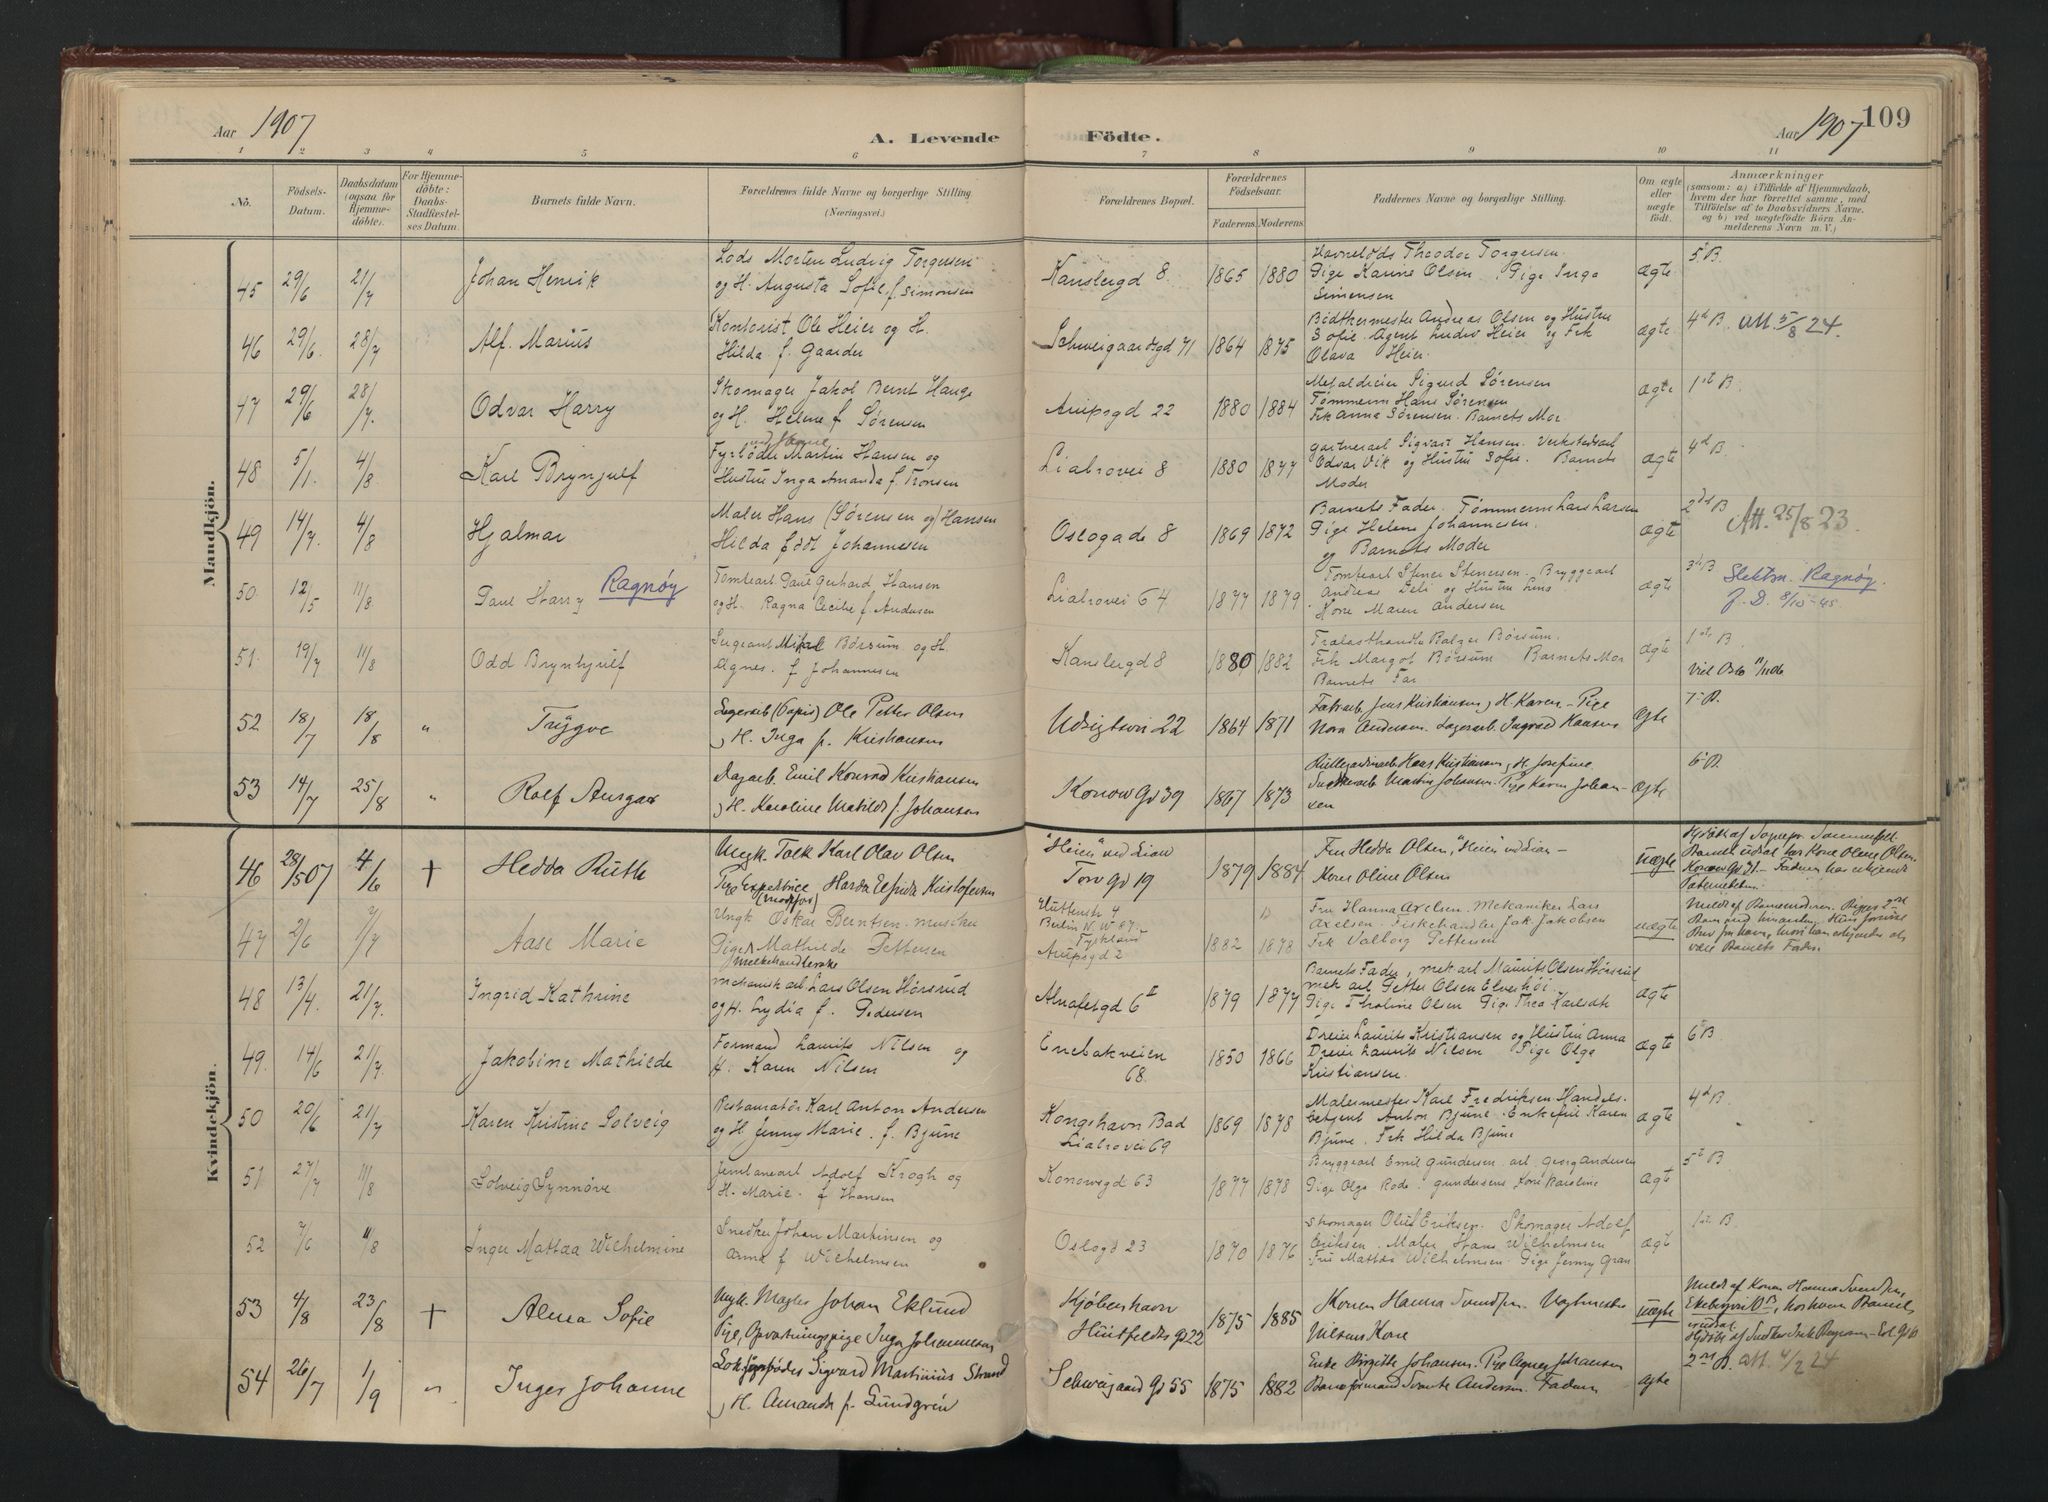 Aar 1907
A. Levende Födte.
Aar 1907 109
1 2 3 4 5 6 7 8 9 10 11
No.
Födsels-Datum.
Daabsdatum (ogsaa for Hjemme-döbte).
For Hjemme-döbte: Daabs-Stadfæstel-ses Datum.
Barnets fulde Navn.
Forældrenes fulde Navne og borgerlige Stilling. (Næringsvei.)
Forældrenes Bopæl.
Forældrenes Födselsaar.
Faderens Moderens
Faddernes Navne og borgerlige Stilling.
Om ægte eller uægte født.
Anmærkninger
(saasom: a) i Tilfælde af Hjemmedaab,
hvem der har forrettet samme, med
Tilföielse af to Daabsvidners Navne.
og b) ved uægtefödte Börn An-
melderens Navn m. V.)
Mandkjön.
45 29/6 21/7 Johan Henrik
Lods Morten Ludvig Torgersen
og H. Augusta Sofie f. Simonsen
Kanslergd 8. 1865 1880
Havnelods Theodor Torgersen.
Pige Karine Olsen. Pige Inga
Simensen
ægte 5 B.
46 29/6 28/7 Alf. Marius
Kontorist Ole Heier og H.
Hilda f. Gaarder
Schweigaardsgd 71 1864 1875
Bødkermester Andreas Olsen og Hustru
Sofie. Agent Ludv Heier og Frk
Olava Heier.
ægte 4d B. att. 5/8 24.
47 29/6 28/7. Odvar Harry
Skomager Jakob Bernt Hauge
og H. Helene f Sørensen
Arupsgd 22 1880 1884
Metaldreier Sigurd Sørensen
Tømmerm Hans Sørensen
Frk Anna Sørensen. Barnets Mor
ægte 1st B.
48 5/1. 4/8 Karl Brynjulf
Fyrbøder Martin Hansen og
Hustru Inga Amanda f. Tronsen
Liabrovei 8 1880 1877
gartnerarb Sigvart Hansen. Verkstedsarb
Odvar Vik og Hustru Sofie. Barnets
Moder
ægte 4d B
49 14/7. 4/8 Hjalmar
Maler Hans (Sørensen og) Hansen
Hilda født Johannesen
Oslogade 8 1869 1872
Barnets Fader. Tømmerm Lars Larsen
Pige Helene Johannesen.
og Barnets Moder
ægte 2d B Att. 25/8 23.
50. 12/5 11/8 Paul Harry Ragnøy
Tomtearb. Paul Gerhard Hansen
og H. Ragna Cecilie f. Andersen
Liabrovei 64 1877 1879
Tomtearb Stener Stenersen. Bryggearb
Andreas Deli og Hustru Lina
Kone Maren Andersen
ægte 3d B Slektsn. Ragnøy.
J. D. 8/10-45
51. 19/7 11/8 Odd Brynhjulf
Sergeant Mikal Børsum og H.
Agnes. f Johannesen
Kanslergd 8 1880 1882
Trælasthandler Balzer Børsum.
Frk Margot Børsum Barnets Mor
Barnets Far
ægte 1st B
Viel Oslo
52 18/7 18/8 " Trygve
Lagerarb (Papir) Ole Petter Olsen
og H. Inga f. Kristiansen
Udsigtsvei 22 1864 1871
Fabrarb. Jens Kristiansen, H. Karen. Pige
Nora Andersen. Lagerarb. Ingvald Hansen
ægte 7 B.
53 14/7 25/8 " Rolf Ansgar
Dagarb. Emil Konrad Kristiansen
og H. Karoline Matilde f. Johansen
Konow Gd 39 1867 1873
Hans Kristiansen, H. Josefine.
Martin Johansen. Pige Karen Johan-
sen
ægte 6 B.
Kvindekjön.
46 28/5 07 4/6 + Hedda Ruth
Ungk. Tolk Karl Olav Olsen
Pige Expeditrice Harda Elfrida Kristofersen
"Heien" ved Lian
Torv Gd 19
1879 1884
Fru Hedda Olsen, "Heien" ved Lian -
Kone Oline Olsen
uægte
Barnet udsat hos Kone Oline Olsen
Konow Gd 21 - Faderen har erkjendt
Paterniteten.
47 2/6 7/7 Aase Marie
Ungk Oskar Berntsen. musiker
Pige Mathilde Pettersen
Melkehandlerske
Huttenstr 4
Berlin N. W. 87.
Tyskland
Arupsgd 2
1882 1878
Fru Hanna Axelsen. Mekaniker Lars
Axelsen. Fiskehandler Jak. Jakobsen
Frk Valborg Pettersen
uægte
være Barnets Fader.
48 13/4 21/7. Ingrid Kathrine
Mekanisk arb. Lars Olsen Hørsrud
og H. Lydia f. Pedersen
Alnafetgd 6 II 1879 1877
Barnets Fader, mek arb Maurits Olsen Hørsrud
mek arb Petter Olsen Elverhøi
Pige Tholine Olsen Pige Thea Karlsdt
ægte
49. 14/6 21/7. Jakobine Mathilde
Formand Laurits Nilsen og
H. Karen Nilsen
Enebakveien
68.
1850 1866
Dreier Laurits Kristiansen og Hustru Anna
Dreier Laurits Nilsen Pige Olga
Kristiansen.
ægte 6 B
50 20/6 21/7 Karen Kristine Solveig
Restauratør Karl Anton Andersen
og H. Jenny Marie. f. Bjune
Kongshavn Bad
Liabrovei 69
1869 1878
Malermester Karl Fredriksen Handels-
betjent Anton Bjune. Enkefru Karen
Bjune. Frk Hilda Bjune
ægte 4d B
51 27/7 11/8 Solveig Synnøve
Jernbanearb Adolf Krogh og
H. Marie. f Hansen
Konowsgd 63 1877 1878
Bryggearb Emil Gundersen. arb. Georg Andersen
Pige Olga Rode. Gundersens Kone Karoline
ægte 5t B
52 7/6 11/8 Inger Mattea Wilhelmine
Snedker Johan Martinsen og
Anna f Wilhelmsen
Oslogd 23 1870 1876
Skomager Oluf Eriksen. Skomager Adolf
Eriksen. Maler Hans Wilhelmsen
Fru Mattea Wilhelmsen. Pige Jenny Gran
ægte 1st. B
53 4/8 23/8 + Alma Sofie
Ungk. Magler Johan Eklund
Pige, Opvartningspige Inga Johannesen
Kjøbenhavn
Huitfeldts Gd 22
1875 1885
Konen Hanna Svendsen. Vognmester
Nilsens Kone
uægte
Meldt af Konen Hanna Svendsen,
Ekebergvei, hos hvem Barnet
er udsat.
54 26/7 1/9 " Inger Johanne
Lok.fyrbøder Sigvard Martinius Strand
og H. Amanda f. Lundgren
Schweigaard Gd 55 1875 1882
Enke Birgitte Johansen. Pige Agnes Johansen
Baneformand Svante Andersen. Faderen
ægte 2den B. att. 4/2 24